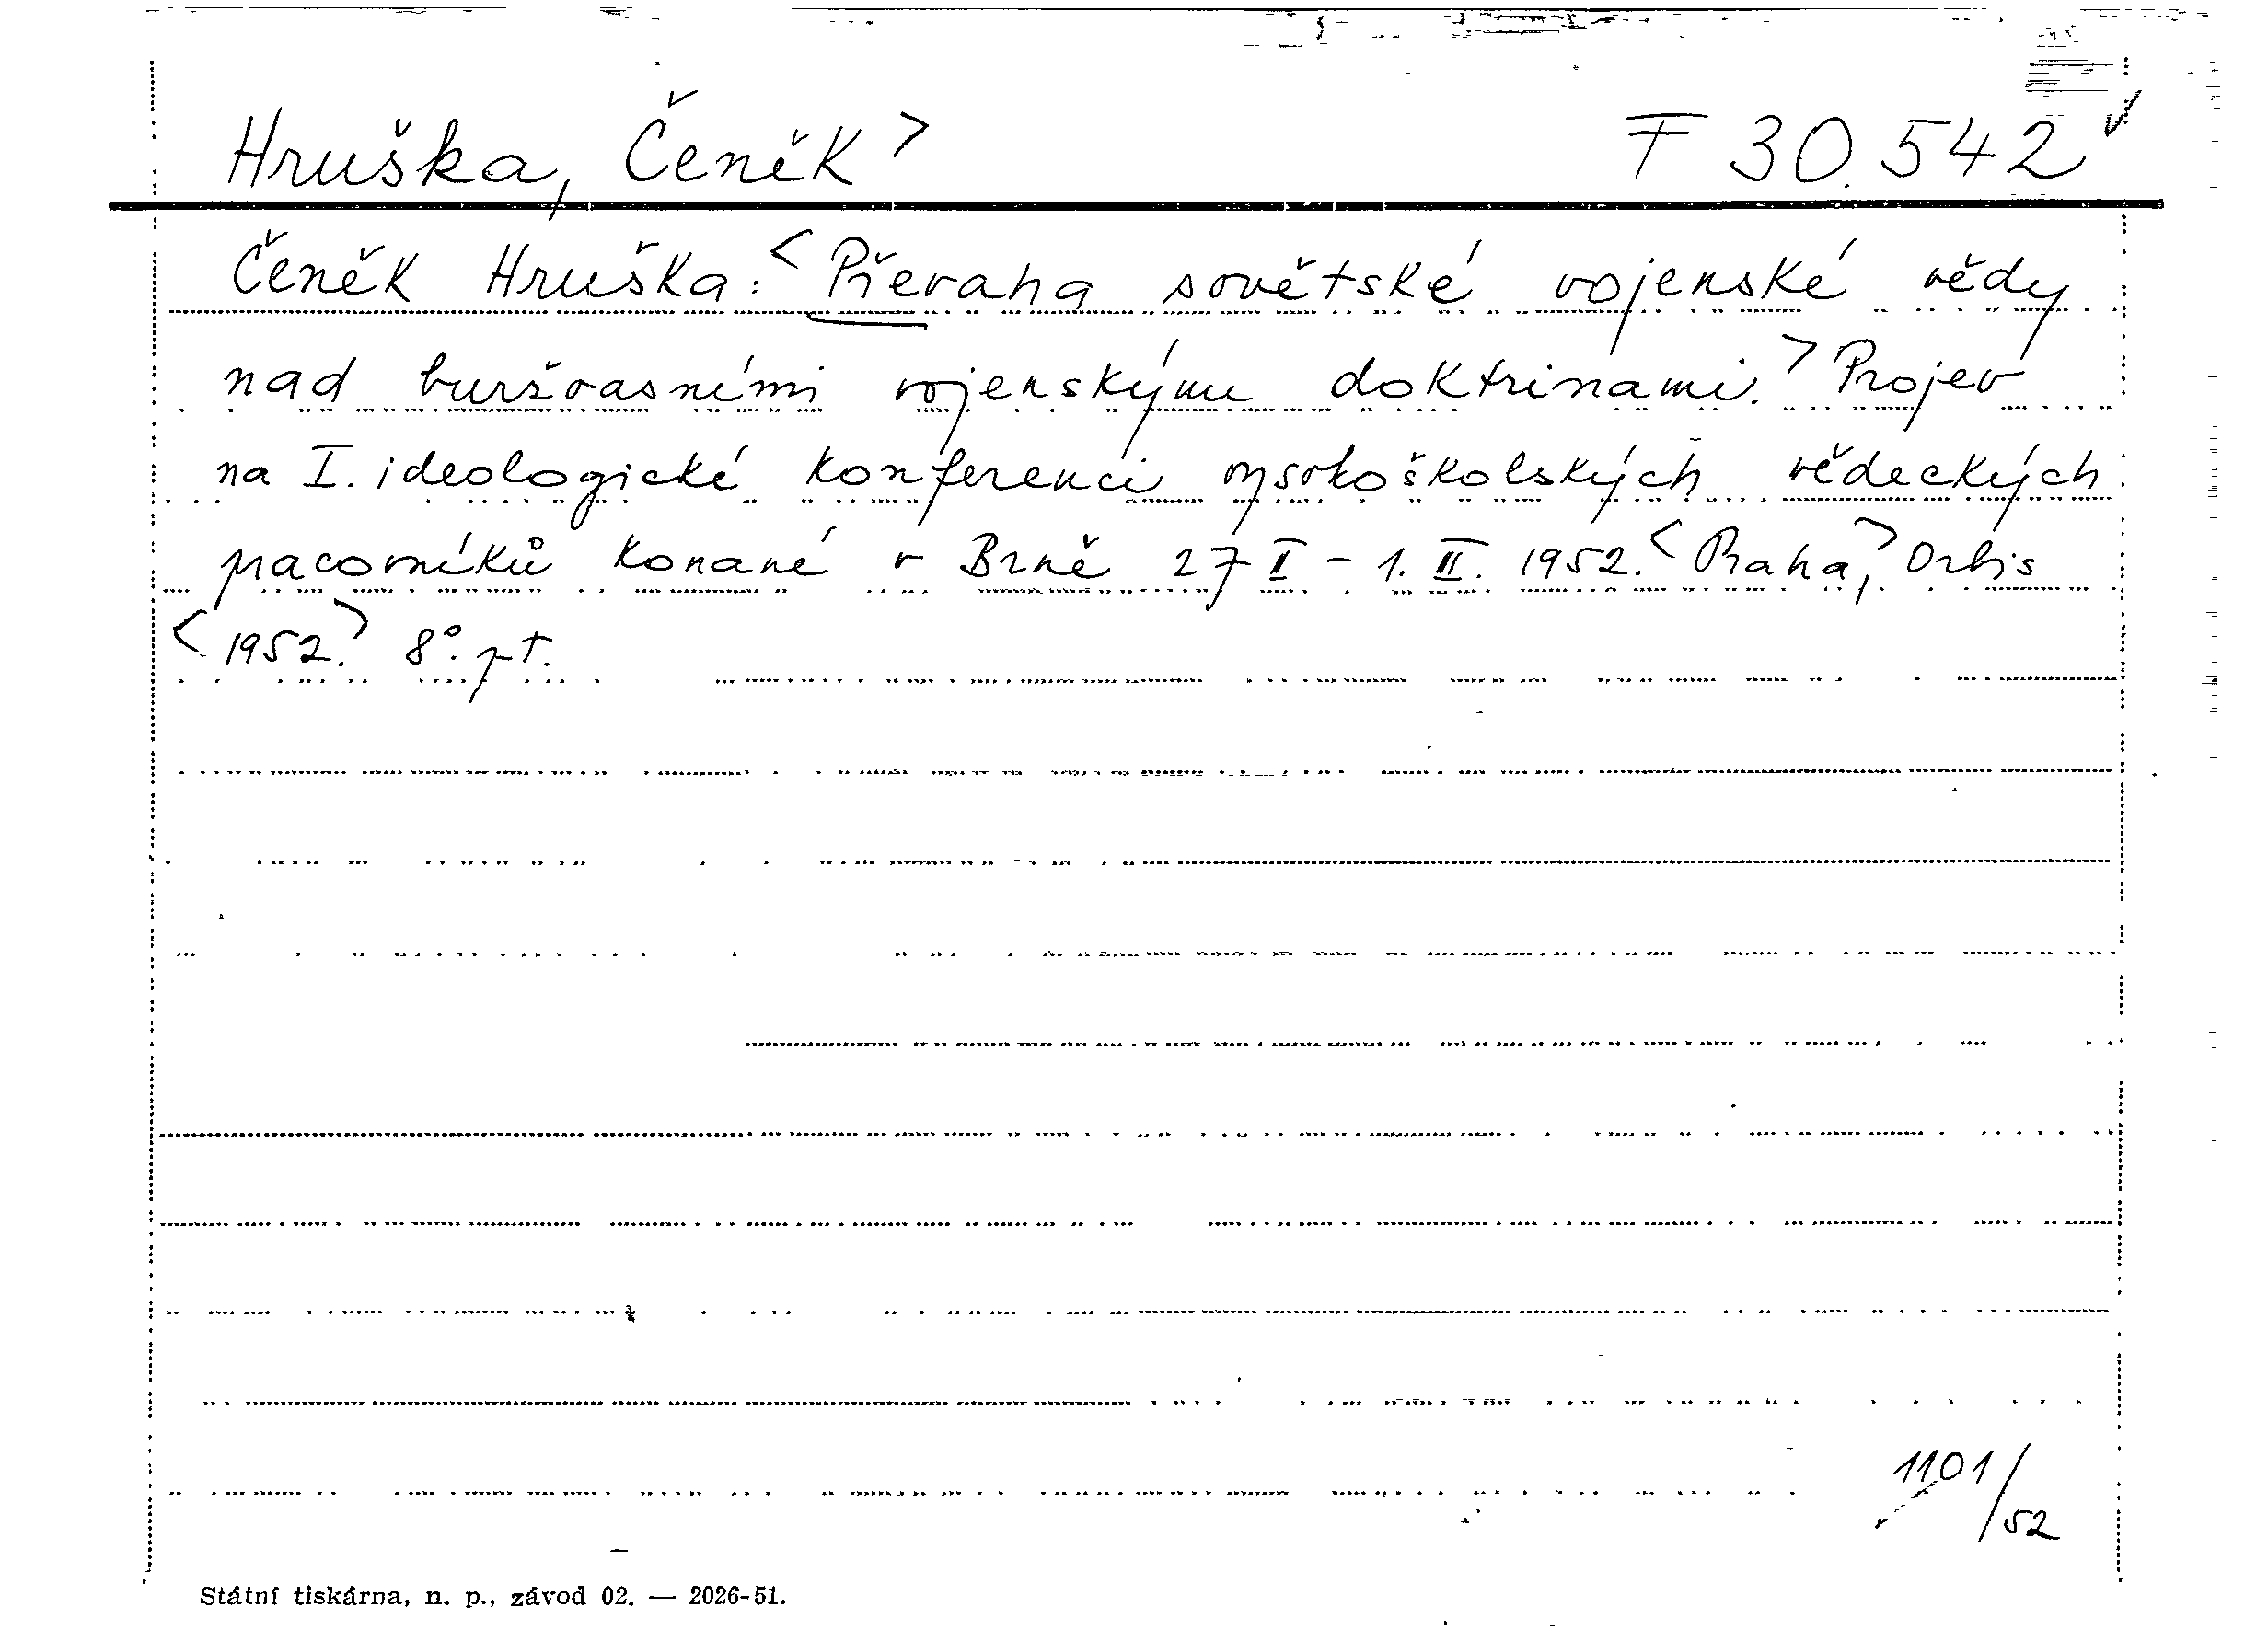 Hruška, Čeněk> F 30.542
Čeněk Hruška: <Převaha sovětské vojenské vědy
nad buržoasními vojenskými doktrinami.> Projev
na I. ideologické konferenci vysokoškolských vědeckých
pracovníků konané v Brně 27 I - 1. II. 1952. <Praha,> Orbis
<1952.> 8°. pt.
1101/52
Státní tiskárna, n. p., závod 02. — 2026-51.